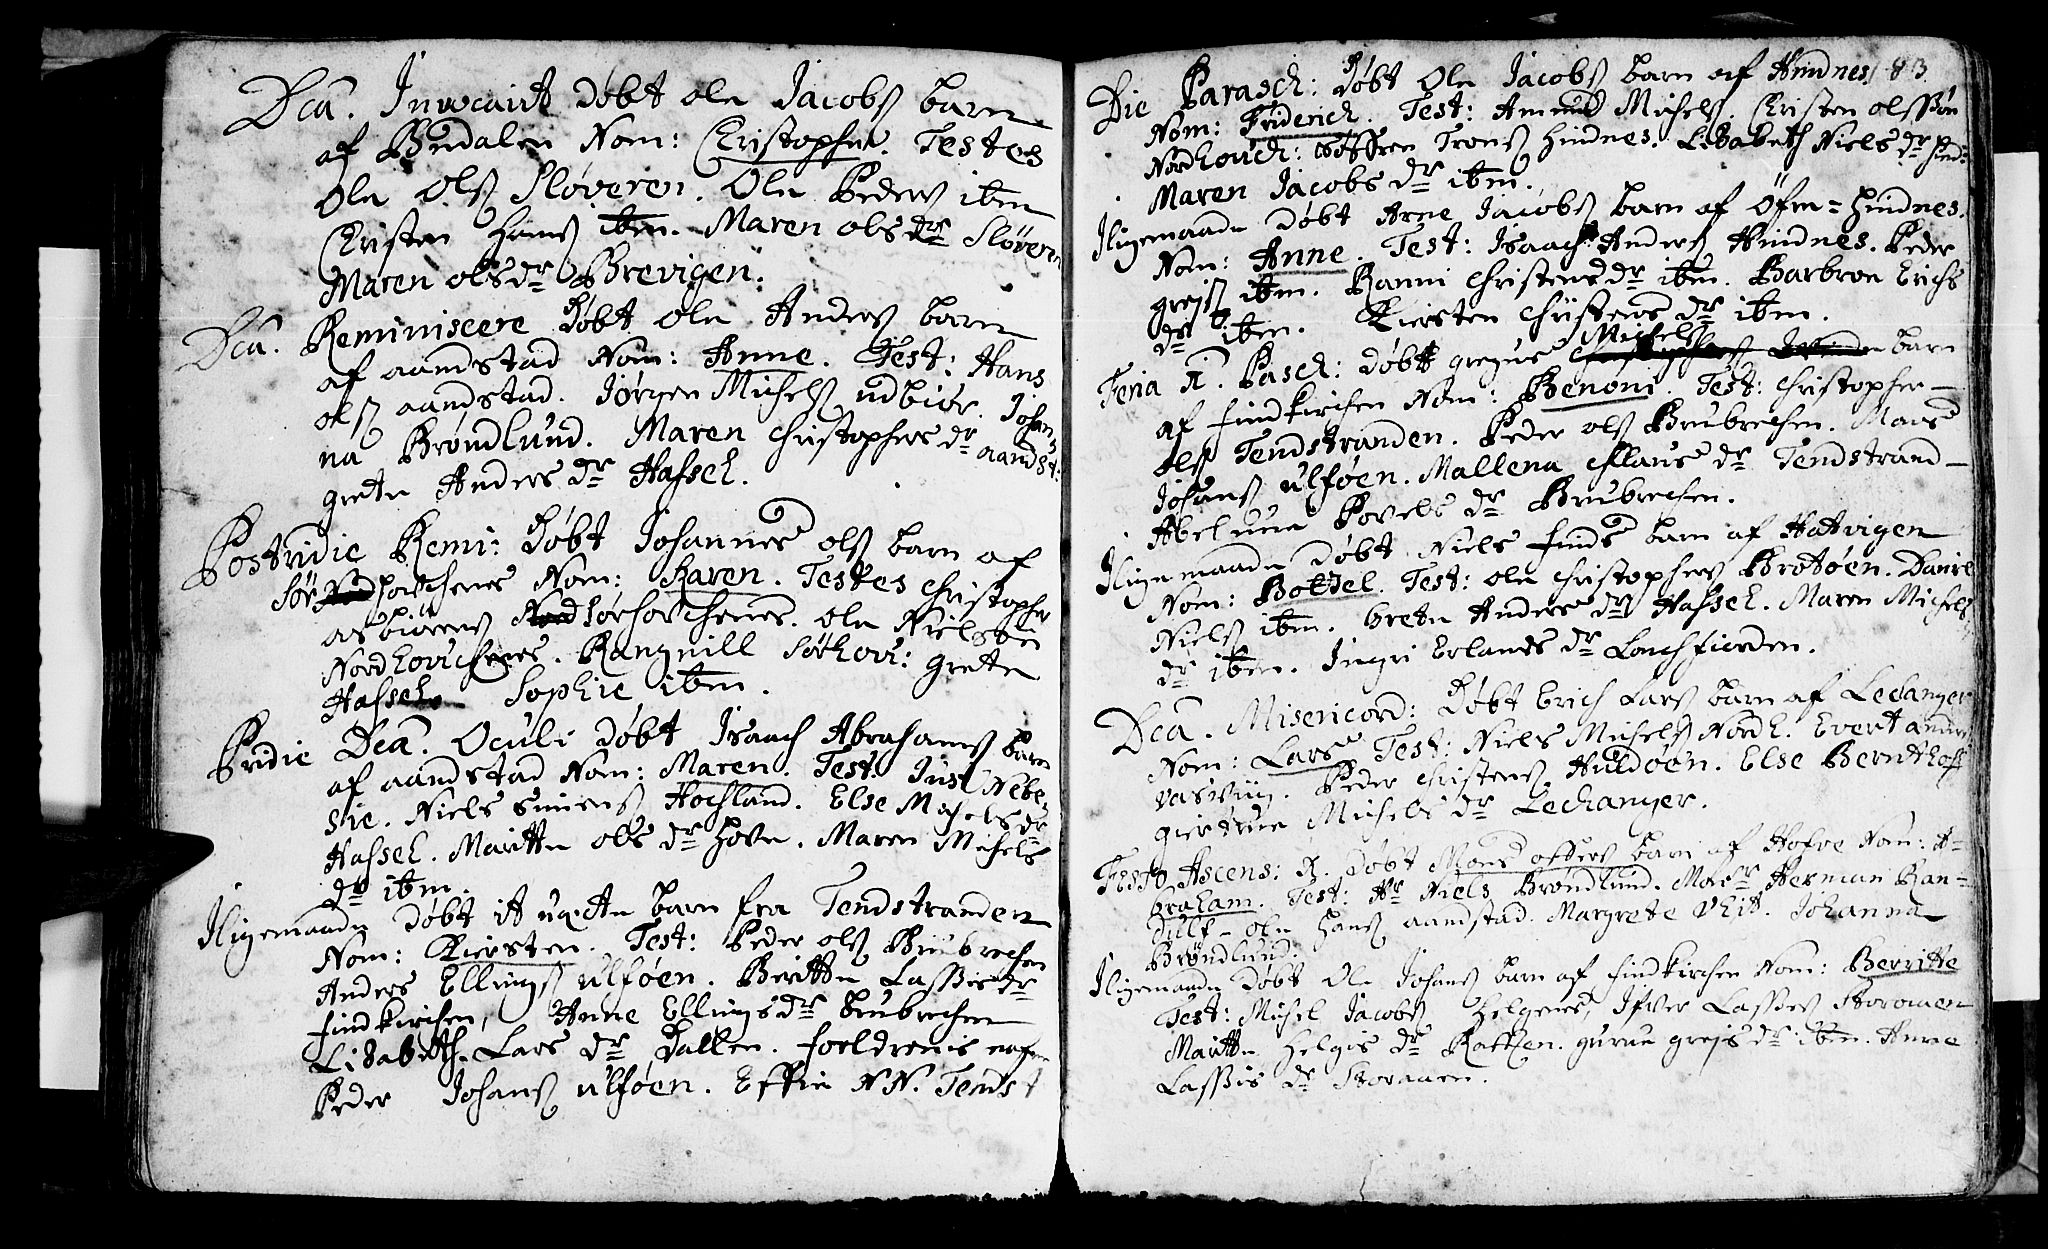 Dca. Invocavit døbt ole Jacobs barn
af Bredalen Nom: Christopher. Testes
Ole Ols Sløveren. Ole Peders ibm
Christen Hans ibm. Maren olsdr Sløveren
Maren olsdr Brevigen:
Dca. Reminiscere døbt Ole Anders barn
af aandstad Nom: Anne. Test: Hans
ols aandstad. Jørgen Michels udbiør. Johan
na Brøndlund. Maren Christophers dr aandst:
grete Anders dr Hassel.
Postridie Remi: døbt Johannes ols barn af
Sør Nom: Karen. Testes Christopher
asbiørns ole Nielsøn
Nordhouchenes. Rangnill Sørhou: grete
Hassel Sophie ibm.
Pridie Dca. Oculi døbt Isaach Abrahams barn
af aandstad Nom: Maren. Test: Just Nebel
sie. Niels Hochland. Else Michels dr
Hassel. Maritte ols dr Hovn. Maren Michels
dr ibm.
Iligemaade døbt it barn fra Tendstranden
Nom: Kiersten. Test: Peder ols Brubrechen
Anders Ellings ulføen. Beritte Lasses dr
Findkirchen, Anne Ellings dr Brubrechen
Lisabeth Lars dr Dallen. foeldrenis nafne
Peder Johans ulføen. Effie N N. Tendst
83
Die Parasch: døbt Ole Jacobs barn af Hindnes
Nom: Friderich. Test: Amund Michels. Christen olssøn
Nordhouch: Søffren Trons Hindnes. Lisabeth Niels dr Hind:
Maren Jacobs dr ibm.
Iligemaade døbt Arne Jacobs barn af Öfre=Hindnes.
Nom: Anne. Test: Isaach Anders Hindnes. Peder
grejs ibm. Ranni Christens dr ibm. Barbroe Erichs
dr ibm. Kiersten Christens dr ibm.
Michels
Feria II. Pasch: døbt gregus barn
af Findkirchen Nom: Benoni. Test: Christopher
ols Tendstranden. Peder ols Brubrechen. Mons
Johans ulføen. Mallena Claus dr Tendstrand
Abelune Povels dr Brubrechen.
Iligemaade døbt Niels Finds barn af Hatvigen
Nom: Boetel. Test: ole Christophers Brotøen. Daniel
Niels ibm. Grete Anders dr Hassel. Maren Michels
dr ibm. Ingri Erlands dr Lonchfiorden.
Dca. Misericord: døbt Erich Lars barn af Lechanger
Nom: Lars Test: Niels Michels Nordh. Evert anders
vasviig. Peder Christens Huldøen. Else Bernthoff
giertrue Michels dr Lechanger.
Festo Ascens: døbt Mons barn af Hofve Nom: A=
braham. Test: Hr Niels Brøndlund. Herman Ran=
dulf ole Hans aandstad. Margrete Johanna
Brøndlund.
Iligemaade døbt Ole Johans barn af Findkirchen Nom: Berritte
Test: Michel Jacobs Helgenes, Ifver Lasses Storomen
Maritte Helgis dr Ratten. gurue grejs dr ibm. Anne
Lasses dr Storaaen.